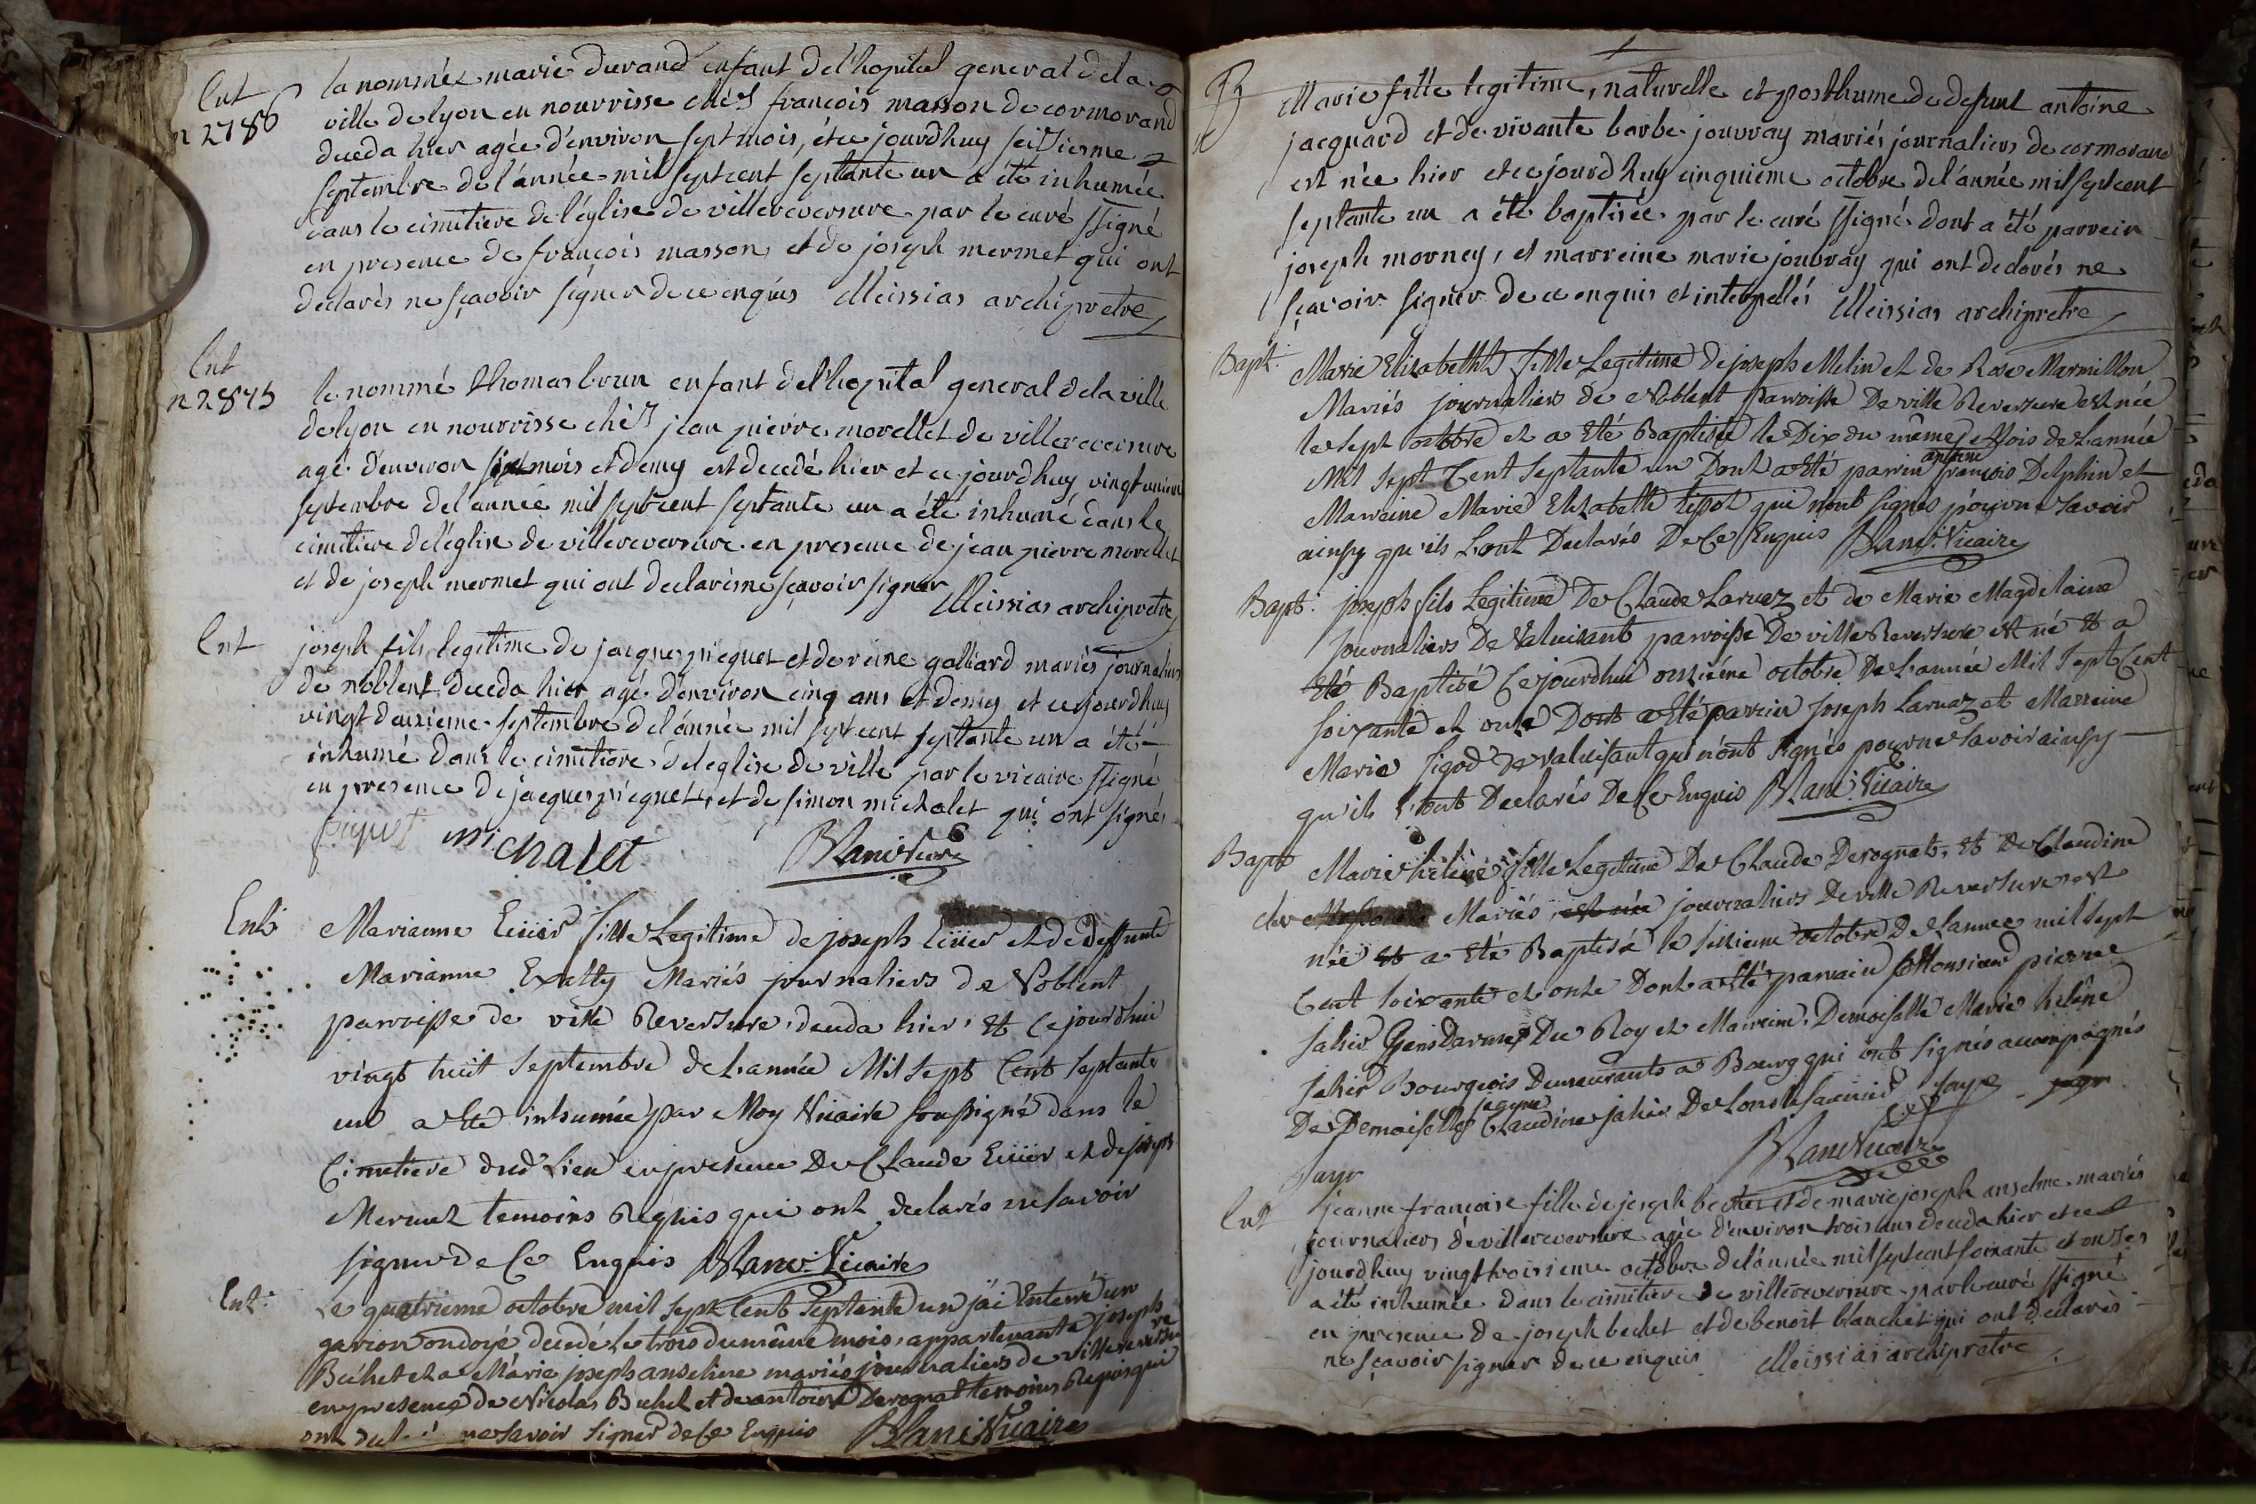 Ent
n 2786
la nommée marie durand enfant de l'hopital general de la
ville de lyon en nourrisse chés françois masson de cormorand
deceda hier agée d'environ sept mois, et ce jourdhuy seizieme
septembre de l'année mil sept cent septante un a été inhumée
dans le cimitiere de l'église de villereversure par le curé ssigné
en presence de françois masson et de joseph mermet qui ont
declarés ne sçavoir signer de ce enquis Meissias archipretre
Ent
n 2875
le nommé thomas brun enfant de l'hopital general de la ville
de lyon en nourrisse chés jean pierre morellet de villereversure
agé d'environ mois et demy est decedé hier et ce jourdhuy vingt unieme
septembre de l'année mil sept cent septante un a été inhumé dans le
cimitiere de l'église de villereversure en presence de jean pierre morellet
et de joseph mermet qui ont declarés ne sçavoir signer
Meissias archipretre
Ent
joseph fils legitime de jacques picquet et de reine galliard mariés journaliers
de noblent deceda hier agé d'environ cinq ans et demy et ce jourdhuy
vingt deuxieme septembre de l'année mil sept cent septante un a été
inhumé dans le cimitiere de l'eglise de ville par le vicaire ssigné
en presence de jacques picquet, et de simon michalet qui ont signés
piquet michalet Blanc Vicaire
Ent:
Marianne fille Legitime de joseph et de deffunte
Marianne Mariés journaliers de Noblent
paroisse de ville Reversure, deceda hier, et ce jourdhui
vingt huit septembre de L'année Mil sept Cent septante
un a Eté inhumée par Moy Vicaire soussigné dans le
Cimitiere dud Lieu en presence De Claude et de joseph
Mermet temoins Requis qui ont declarés ne savoir
signer de Ce Enquis Blanc Vicaire
Ent:
Le quatrieme octobre mil sept Cent septante un j'ai Enterré un
garcon ondoyé decedé Le trois du même mois, appartenant a joseph
Bechet et a Marie joseph anselme mariés journaliers de villereversure
en presence de Nicolas Bechet et de antoine Derognat temoins Requis qui
ont declaré ne savoir signer de Ce Enquis Blanc Vicaire
B
Marie fille legitime, naturelle et posthume de defunt antoine
jacquard et de vivante barbe jouvray mariés journaliers de cormorand
est née hier et ce jourdhuy cinquieme octobre de l'année mil sept cent
septante un a été baptisée par le curé ssigné dont a été parrein
joseph morney, et marreine marie jouvray qui ont declarés ne
sçavoir signer de ce enquis et interpellés Meissias archipretre
Bapt:
Marie Elizabethh fille Legitime de joseph Melin et de Rose Marmillon
Mariés journaliers de Noblent Parroisse De ville Reversure est née
le sept octobre et a Eté Baptisée le Dix du même Mois de L'année
Mil sept Cent septante un Dont a Eté parrin antoine françois Delphin et
Marreine Marie Elizabette tissot qui n'ont signés pour ne savoir
ainsy qu'ils L'ont Declarés De Ce Enquis Blanc Vicaire
Bapt:
joseph fils Legitime De Claude Laruaz et de Marie Magdelaine
journaliers De Valuisant parroisse De ville Reversure est né et a
Eté Baptisé Ce jourdhui onzieme octobre De L'année Mil Sept Cent
soixante et onze Dont a Eté parrein Joseph Laruaz et Marreine
Marie sigod De valuisant qui n'ont signés pour ne savoir ainsy
qu'ils L'ont Declarés De Ce Enquis Blanc Vicaire
Bapt
Marie helene fille Legitime De Claude Derognat, et De Claudine
Mariés, est née journaliers De ville Reversure est
née et a Eté Baptisée le seizieme octobre De L'annee mil sept
Cent soixante et onze Dont a Eté parrain Monsieur pierre
Gens Darmes Du Roy et Marreine, Demoiselle Marie helêne
Bourgeois Demeurants a Bourg qui ont signés accompagnés
De Demoiselle Claudine De Lons le saunier
Blanc Vicaire
Ent
jeanne françoise fille de joseph bechet et de marie joseph anselme mariés
journaliers de villereversure agée d'environ trois ans deceda hier et ce
jourdhuy vingt troisieme octobre de l'année mil sept cent soixante et onze
a été inhumée dans le cimitiere de villereversure par le curé ssigné
en presence de joseph bechet et de benoit blanchet qui ont declarés
ne sçavoir signer de ce enquis Meissias archipretre